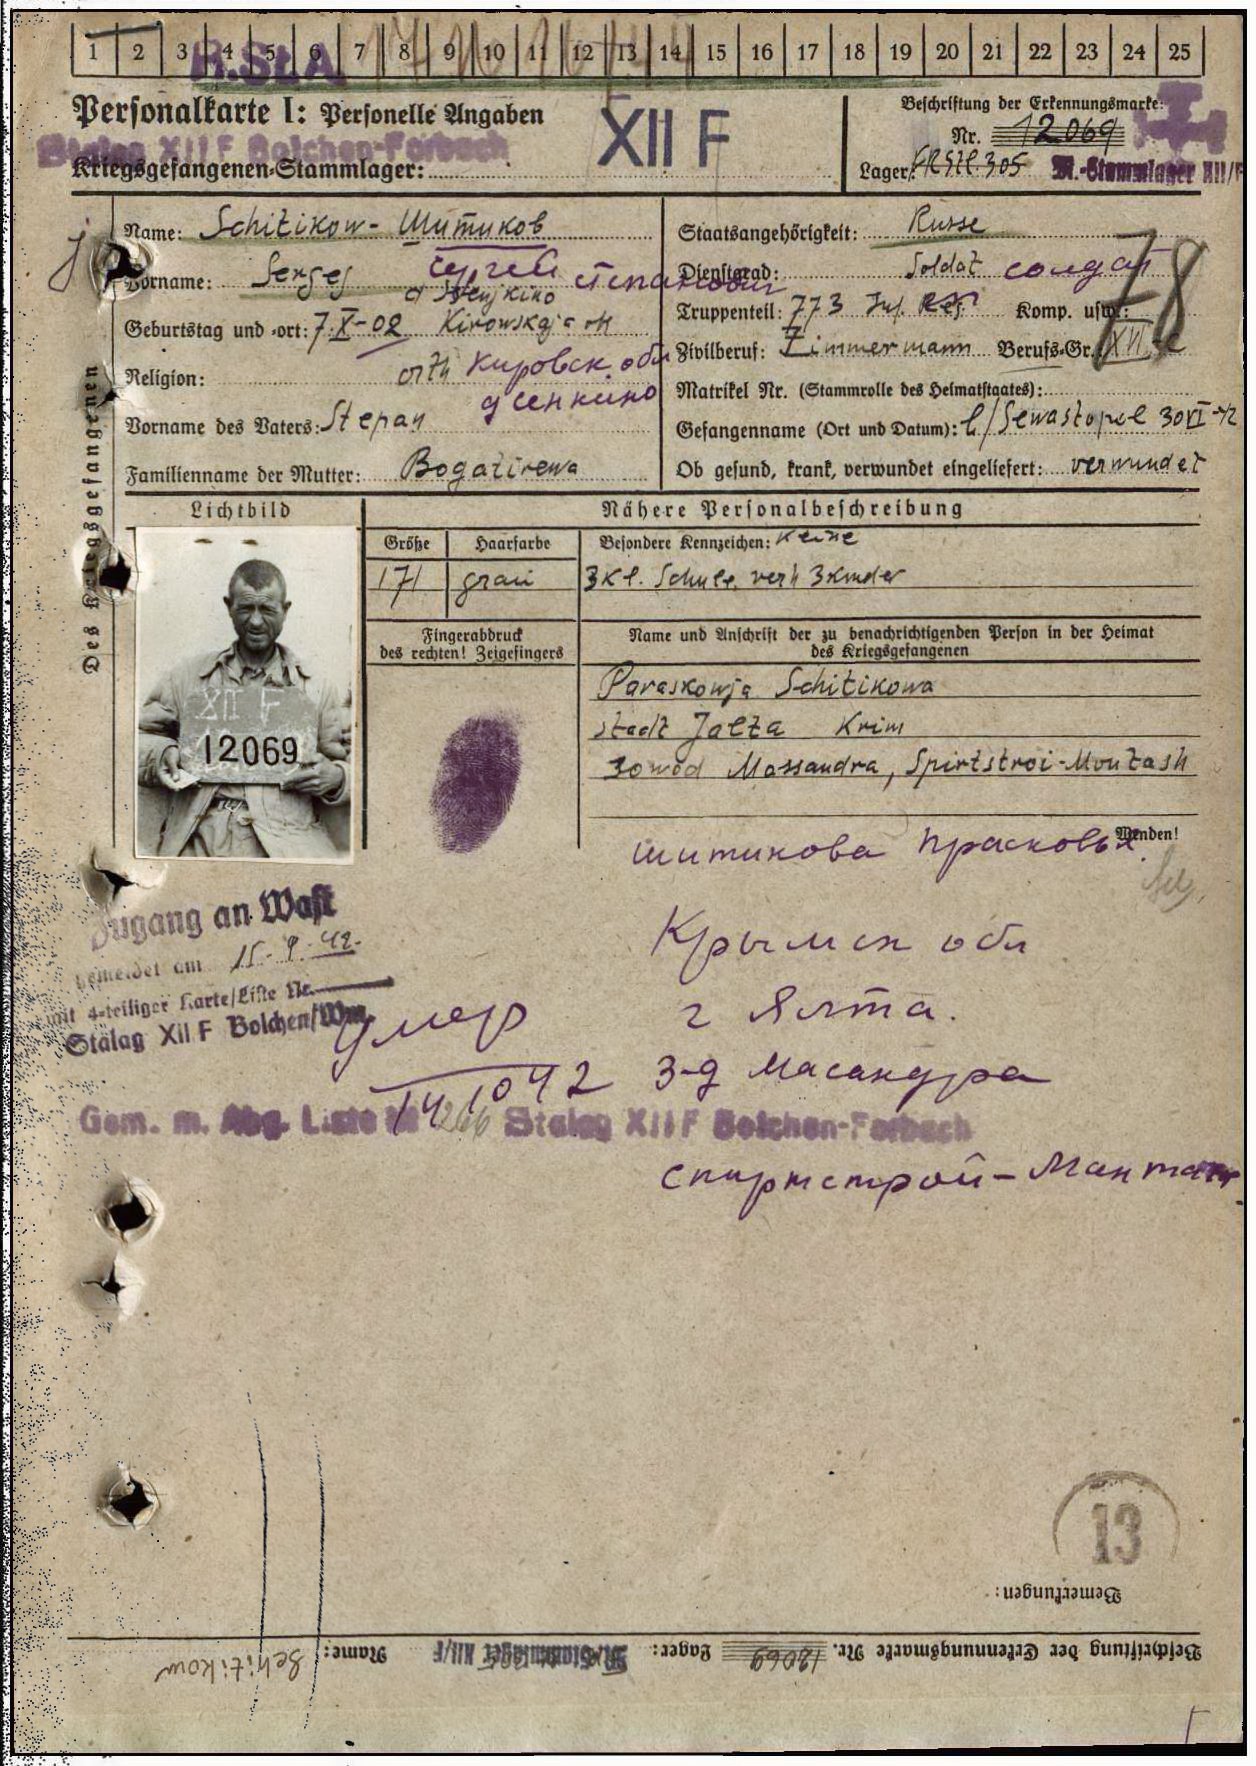 1 2 3 4 5 6 7 8 9 10 11 12 13 14 15 16 17 18 19 20 21 22 23 24 25
H.St.A.
Personalkarte I: Personelle Angaben
XII F
Stalag XII F Bolchen-Forbach
Kriegsgefangenen-Stammlager:
Beschriftung der Erkennungsmarke:
Nr. 12069
Lager: FRSTL. 305 M.-Stammlager XII/F
Des Kriegsgefangenen
Name: Schitikow - Шитиков
Vorname: Sergej Сергей Степанович
d Senjkino
Geburtstag und -ort: 7.X-02 Kirowskaja
Religion: orth Кировск. обл
д Сенкино
Vorname des Vaters: Stepan
Familienname der Mutter: Bogatirewa
Staatsangehörigkeit: Russe
Dienstgrad: Soldat солдат
78
Truppenteil: 773 Inf. Reg. Komp. usw.:
Zivilberuf: Zimmermann Berufs-Gr.: XVII
Matrikel Nr. (Stammrolle des Heimatstaates):
Gefangenname (Ort und Datum): b/Sewastopol 30 VI-42
Ob gesund, krank, verwundet eingeliefert: verwundet
Lichtbild
XII F
12069
Nähere Personalbeschreibung
Größe Haarfarbe Besondere Kennzeichen: Keine
171 grau 3 Kl. Schule, verh 3 Kinder
Fingerabdruck
des rechten! Zeigefingers
Name und Anschrift der zu benachrichtigenden Person in der Heimat
des Kriegsgefangenen
Paraskowja Schitikowa
stadt Jalta Krim
Sowod Massandra, Spirtstroi-Montash
Wenden!
Шитикова Прасковья
Крымск обл
г Ялта.
з-д Масандра
спиртстрой - Монтаж
Zugang an Wast
gemeldet am 15.9.42.
mit 4-teiliger Karte/Liste Nr.
Stalag XII F Bolchen/Wm.
Умер
14 10 42
Gem. m. Abg. Liste N 266 Stalag XII F Bolchen-Forbach
13
Bemerkungen:
Beschriftung der Erkennungsmarke Nr. 12069 Lager: M.-Stammlager XII/F Name: Schitikow